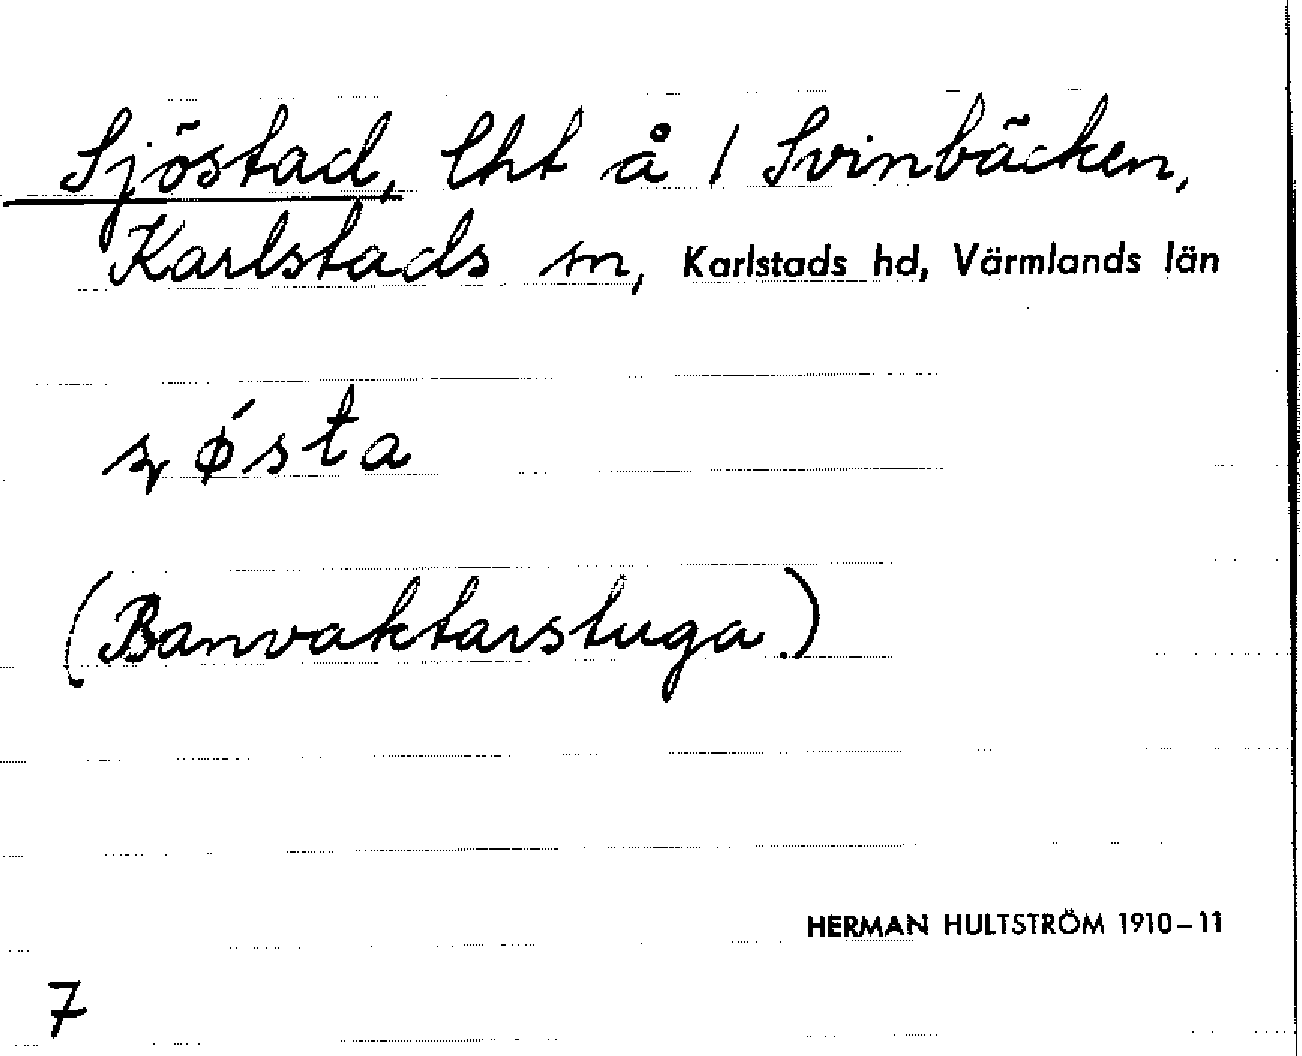 Sjöstad, lht å 1 Svinbäcken,
Karlstads sn, Karlstads hd, Värmlands län
(Banvaktarstuga.)
HERMAN HULTSTRÖM 1910–11
7